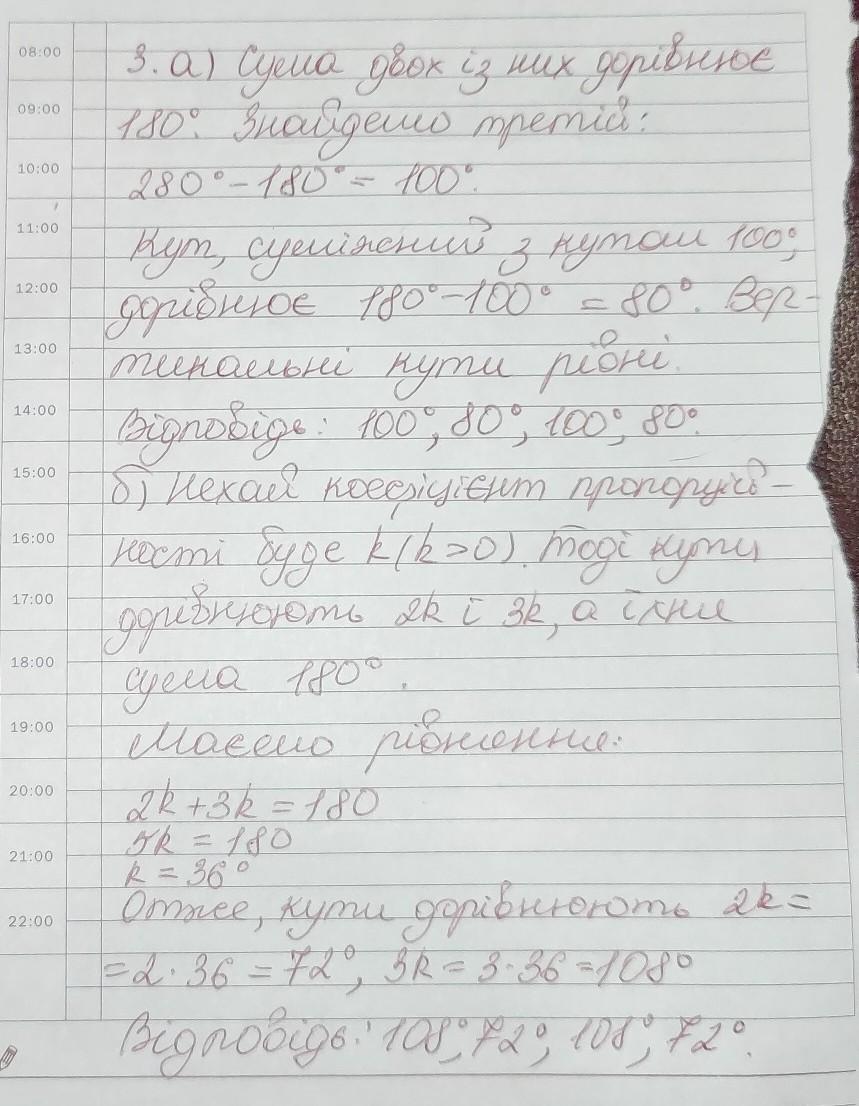 08:00 3. а) Сума двох із них дорівнює
09:00 180°. Знайдемо третій:
10:00 280° - 180° = 100°.
11:00 Кут, суміжний з кутом 100°,
12:00 дорівнює 180° - 100° = 80°. Вер-
13:00 тикальні кути рівні.
14:00 Відповідь: 100°, 80°, 100°, 80°.
15:00 б) Нехай коефіцієнт пропорцій-
16:00 ності буде k (k>0). Тоді кути
17:00 дорівнюють 2k і 3k, а їхня
18:00 сума 180°.
19:00 Маємо рівняння:
20:00 2k + 3k = 180
5k = 180
21:00 k = 36°
22:00 Отже, кути дорівнюють 2k =
= 2 · 36 = 72°, 3k = 3 · 36 = 108°
Відповідь: 108°, 72°, 108°, 72°.